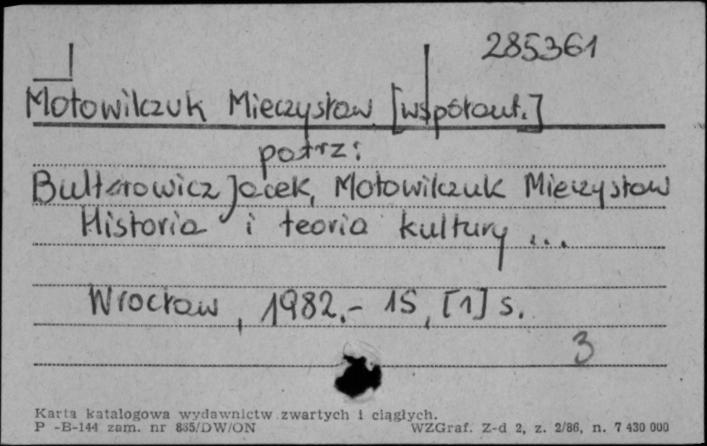 285361
Motowilczuk Mieczysław [współaut.]
patrz:
Bulterowicz Jacek, Motowilczuk Mieczysław
Historia i teoria kultury ...
Wrocław, 1982.- 15, [1] s.
3
Karta katalogowa wydawnictw zwartych i ciągłych.
P -B-144 zam. nr 835/DW/ON WZGraf. Z-d 2, z. 2/86, n. 7 430 000